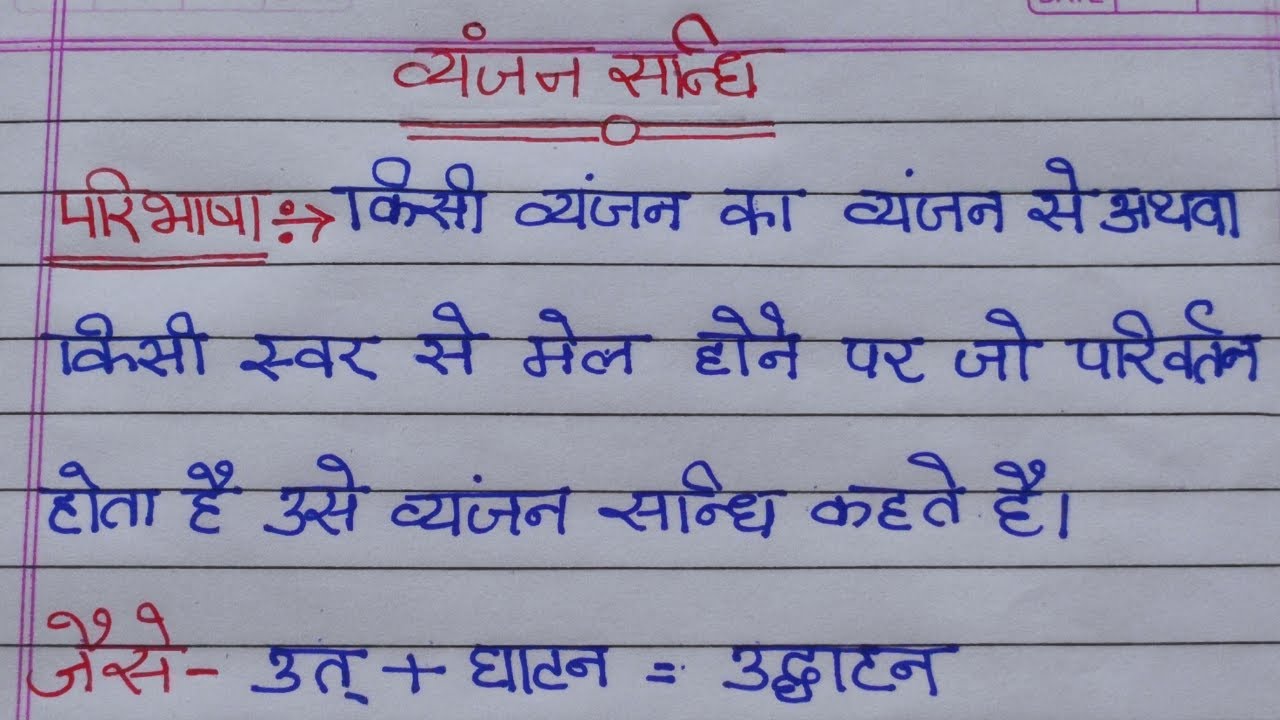 DATE
व्यंजन सन्धि
परिभाषा :→ किसी व्यंजन का व्यंजन से अथवा
किसी स्वर से मेल होने पर जो परिवर्तन
होता है उसे व्यंजन सन्धि कहते है।
जैसे- उत् + घाटन = उद्घाटन